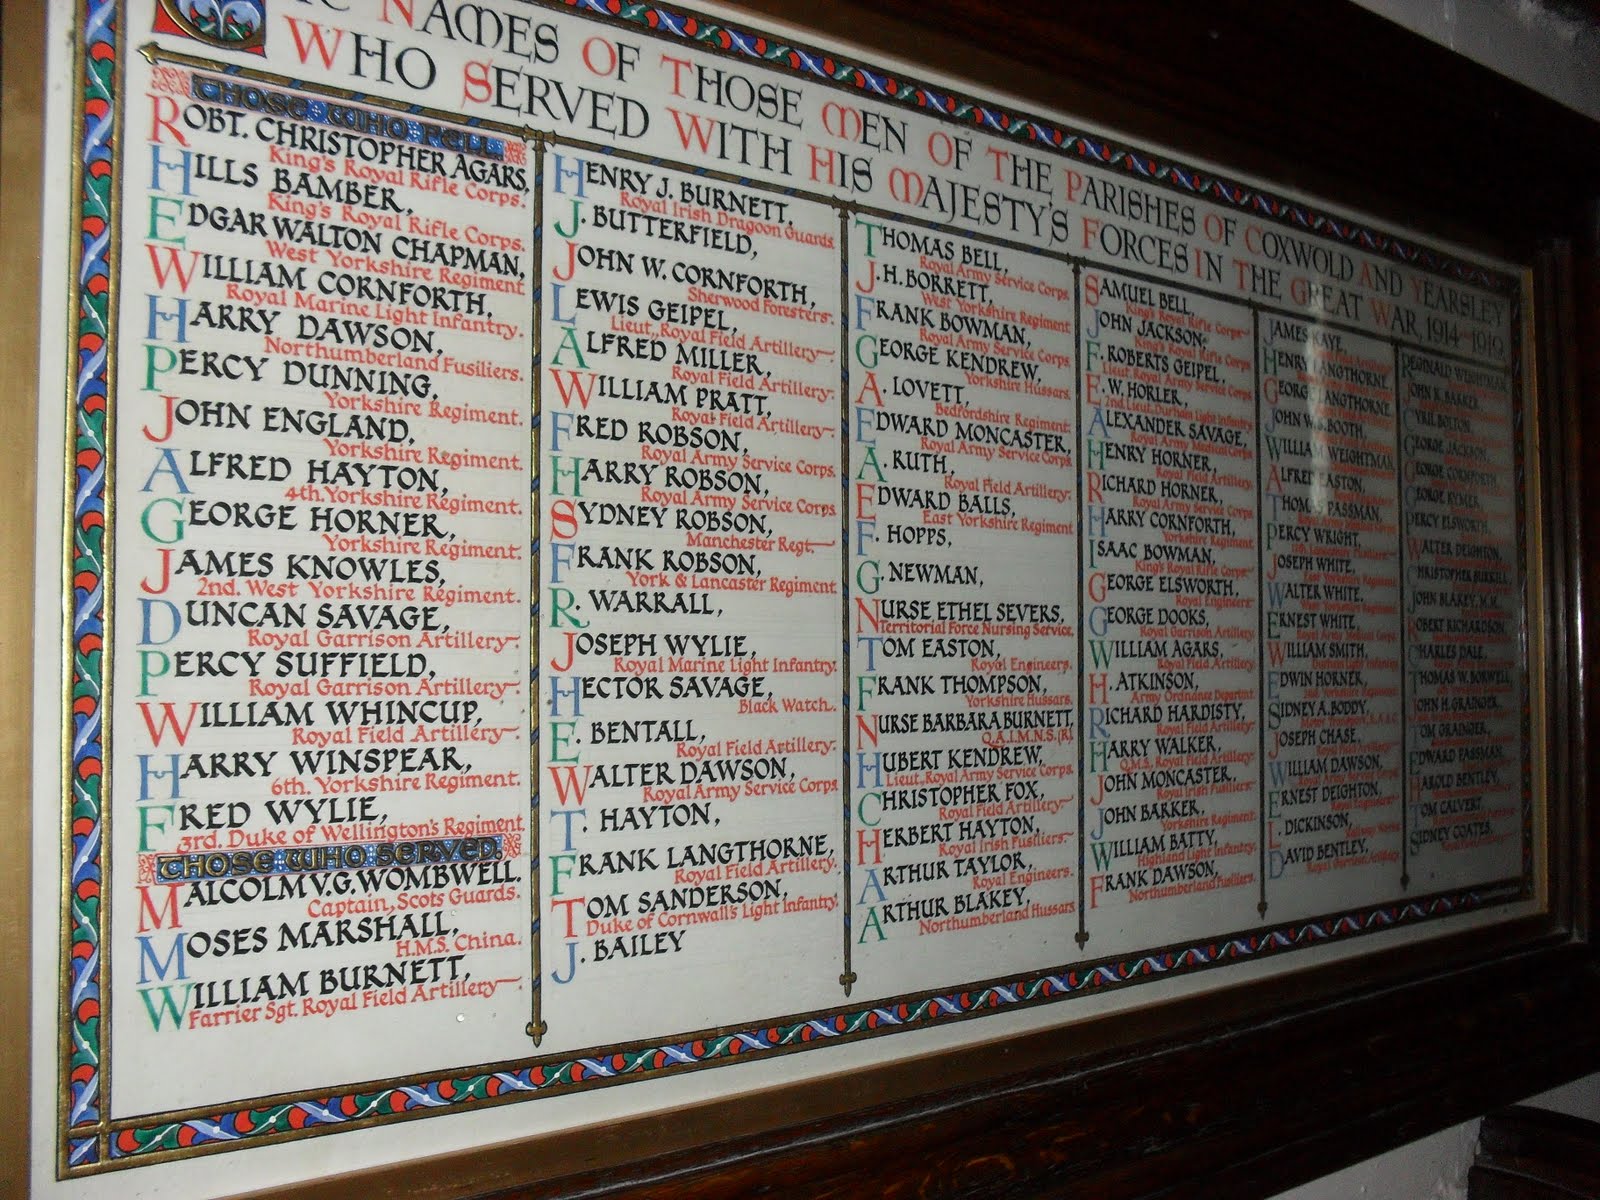 NAMES OF THOSE MEN OF THE PARISHES OF COXWOLD AND YEARSLEY
WHO SERVED WITH HIS MAJESTY'S FORCES IN THE GREAT WAR, 1914-1919.
THOSE WHO FELL.
ROBT. CHRISTOPHER AGARS,
King's Royal Rifle Corps.
HILLS BAMBER,
King's Royal Rifle Corps.
EDGAR WALTON CHAPMAN,
West Yorkshire Regiment.
WILLIAM CORNFORTH,
Royal Marine Light Infantry.
HARRY DAWSON,
Northumberland Fusiliers.
PERCY DUNNING,
Yorkshire Regiment.
JOHN ENGLAND,
Yorkshire Regiment.
ALFRED HAYTON,
4th. Yorkshire Regiment.
GEORGE HORNER,
Yorkshire Regiment.
JAMES KNOWLES,
2nd. West Yorkshire Regiment.
DUNCAN SAVAGE,
Royal Garrison Artillery.
PERCY SUFFIELD,
Royal Garrison Artillery.
WILLIAM WHINCUP,
Royal Field Artillery.
HARRY WINSPEAR,
6th. Yorkshire Regiment.
FRED WYLIE,
3rd. Duke of Wellington's Regiment.
THOSE WHO SERVED.
MALCOLM V.G. WOMBWELL.
Captain, Scots Guards.
MOSES MARSHALL,
H.M.S. China.
WILLIAM BURNETT,
Farrier Sgt. Royal Field Artillery.
HENRY J. BURNETT,
Royal Irish Dragoon Guards.
J. BUTTERFIELD,
JOHN W. CORNFORTH,
Sherwood Foresters.
LEWIS GEIPEL,
Lieut., Royal Field Artillery.
ALFRED MILLER,
Royal Field Artillery.
WILLIAM PRATT,
Royal Field Artillery.
FRED ROBSON,
Royal Army Service Corps.
HARRY ROBSON,
Royal Army Service Corps.
SYDNEY ROBSON,
Manchester Regt.
FRANK ROBSON,
York & Lancaster Regiment
R. WARRALL,
JOSEPH WYLIE,
Royal Marine Light Infantry.
HECTOR SAVAGE,
Black Watch.
E. BENTALL,
Royal Field Artillery.
WALTER DAWSON,
Royal Army Service Corps
T. HAYTON,
FRANK LANGTHORNE,
Royal Field Artillery.
TOM SANDERSON,
Duke of Cornwall's Light Infantry.
J. BAILEY
THOMAS BELL,
Royal Army Service Corps.
J.H. BORRETT,
West Yorkshire Regiment
FRANK BOWMAN,
Royal Army Service Corps.
GEORGE KENDREW,
Yorkshire Hussars.
A. LOVETT,
Bedfordshire Regiment.
EDWARD MONCASTER,
Royal Army Service Corps.
A. RUTH,
Royal Field Artillery.
EDWARD BALLS,
East Yorkshire Regiment
F. HOPPS,
G. NEWMAN,
NURSE ETHEL SEVERS,
Territorial Force Nursing Service.
TOM EASTON,
Royal Engineers.
FRANK THOMPSON,
Yorkshire Hussars.
NURSE BARBARA BURNETT,
Q.A.I.M.N.S.(R).
HUBERT KENDREW,
Lieut., Royal Army Service Corps.
CHRISTOPHER FOX,
Royal Field Artillery.
HERBERT HAYTON,
Royal Irish Fusiliers.
ARTHUR TAYLOR,
Royal Engineers.
ARTHUR BLAKEY,
Northumberland Hussars
SAMUEL BELL,
King's Royal Rifle Corps
JOHN JACKSON,
King's Royal Rifle Corps
F. ROBERTS GEIPEL,
Lieut. Royal Army Service Corps
E.W. HORLER,
2nd. Lieut. Durham Light Infantry.
ALEXANDER SAVAGE,
Royal Army Medical Corps
HENRY HORNER,
Royal Field Artillery.
RICHARD HORNER,
Royal Army Service Corps
HARRY CORNFORTH,
Yorkshire Regiment.
ISAAC BOWMAN,
King's Royal Rifle Corps
GEORGE ELSWORTH,
Royal Engineers
GEORGE DOOKS,
Royal Garrison Artillery.
WILLIAM AGARS,
Royal Field Artillery.
H. ATKINSON,
Army Ordnance Department.
RICHARD HARDISTY,
Royal Field Artillery.
HARRY WALKER,
Q.M.S. Royal Field Artillery.
JOHN MONCASTER,
Royal Irish Fusiliers.
JOHN BARKER,
Yorkshire Regiment.
WILLIAM BATTY,
Highland Light Infantry.
FRANK DAWSON,
Northumberland Fusiliers.
JAMES KAYE,
HENRY LANGTHORNE,
GEORGE LANGTHORNE,
JOHN W. BOOTH,
WILLIAM WEIGHTMAN,
ALFRED EASTON,
THOMAS PASSMAN,
PERCY WRIGHT,
JOSEPH WHITE,
East Yorkshire Regiment
WALTER WHITE,
West Yorkshire Regiment
ERNEST WHITE,
Royal Army Medical Corps
WILLIAM SMITH,
Durham Light Infantry
EDWIN HORNER,
2nd. Yorkshire Regiment
SIDNEY A. BODDY,
JOSEPH CHASE,
Royal Field Artillery
WILLIAM DAWSON,
Royal Army Service Corps
ERNEST DEIGHTON,
Royal Engineers
L. DICKINSON,
DAVID BENTLEY,
Royal Garrison Artillery.
REGINALD WEIGHTMAN,
BARKER,
CYRIL BOLTON,
GEORGE JACKSON,
GEORGE CORNFORTH,
GEORGE
PERCY ELSWORTH,
WALTER DEIGHTON,
CHRISTOPHER
JOHN BLAKEY, M.M.
ROBERT RICHARDSON,
CHARLES DALE,
THOMAS W. BORWELL,
JOHN H. GRAINGER,
TOM GRAINGER,
EDWARD PASSMAN,
HAROLD BENTLEY,
TOM CALVERT,
SIDNEY COATES,